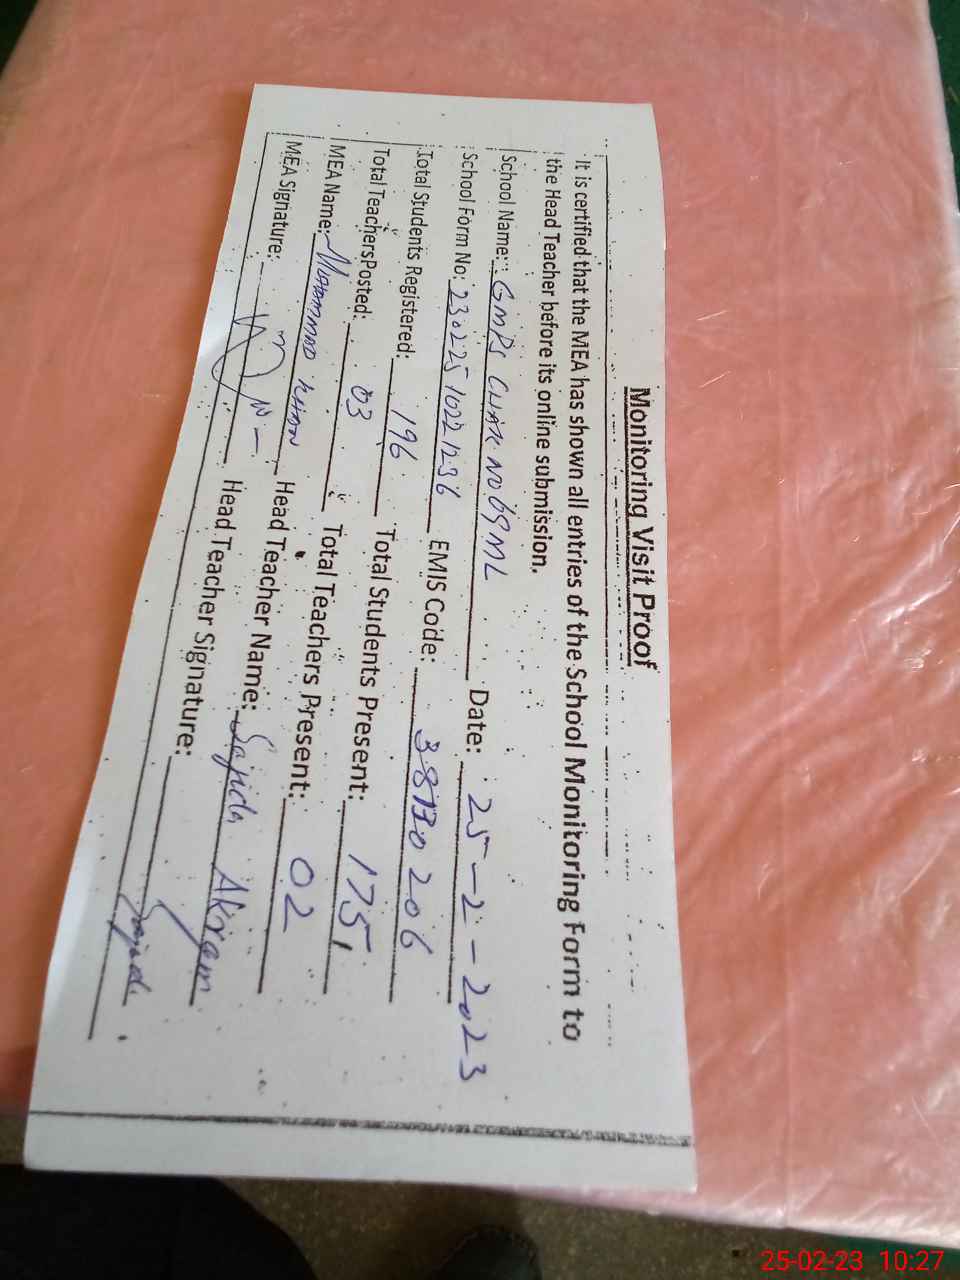 Monitoring Visit Proof
It is certified that the MEA has shown all entries of the School Monitoring Form to
the Head Teacher before its online submission.
School Name: GMPS CHAK NO 69 ML Date: 25-2-2023
School Form No: 23022510221236 EMIS Code: 38130206
Total Students Registered: 196 Total Students Present: 175
Total Teachers Posted: 03 Total Teachers Present: 02
MEA Name: Muhammad Khan Head Teacher Name: Sajida Akram
MEA Signature: Head Teacher Signature: Sajida
25-02-23 10:27